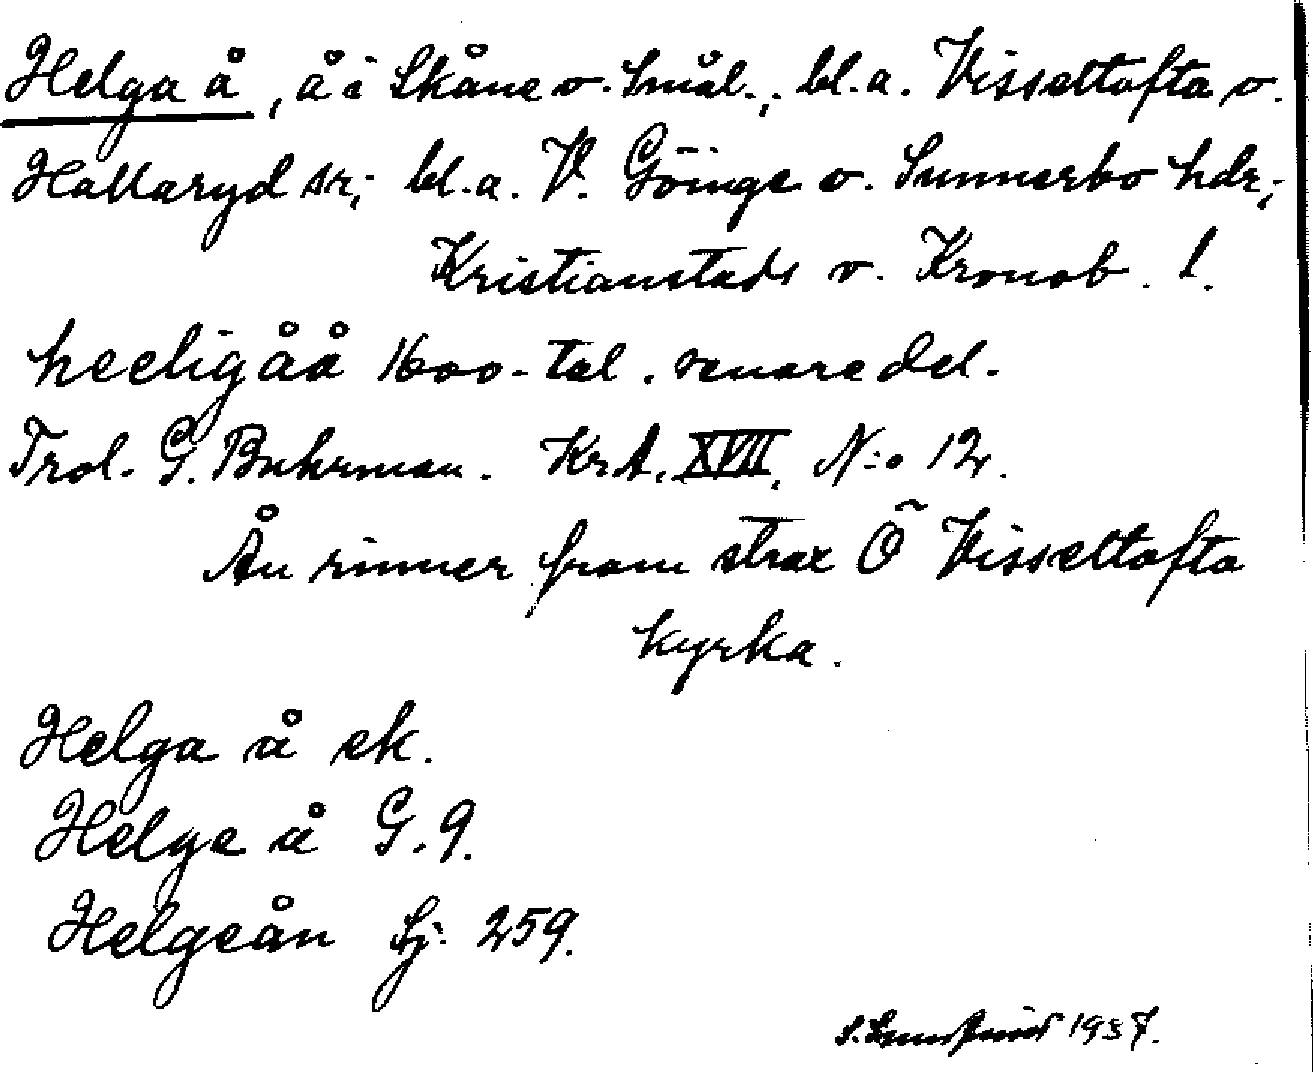 Helga å, å i Skåne o. Smål., bl.a. Visseltofta o.
Hallaryd sr; bl.a. V. Göinge o. Sunnerbo hdr;
Kristianstads o. Kronob. l.
heeligåå 1600-tal. senare del.
Trol. G. Buhrman. KrA. XVII, N:o 12.
Ån rinner fram strax Ö Visseltofta
kyrka.
Helga å ek.
Helge å G. 9.
Helgeån Sj. 259.
S. 1937.